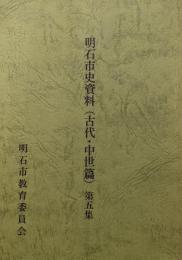 明石市史資料(古代・中世篇) 第五集
明石市教育委員会